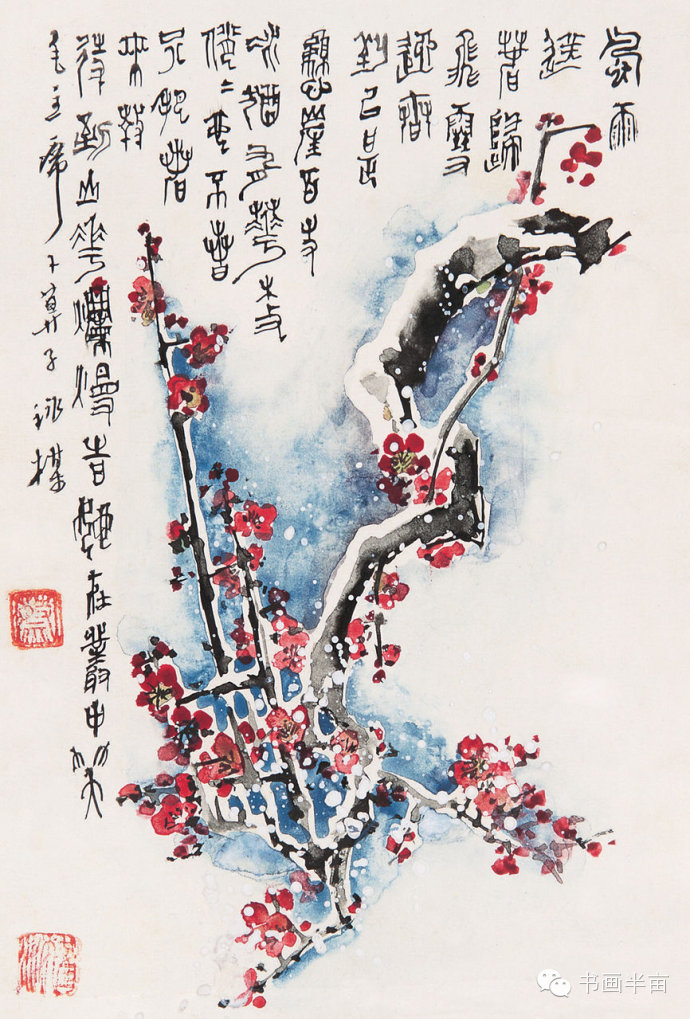 風雨
送
春歸
飛雪
迎春
到已是
懸崖百丈
冰猶有華枝
俏〻也不春
只把春
來報
待到山花爛漫時她在叢中笑
毛主席卜算子詠梅
书画半亩